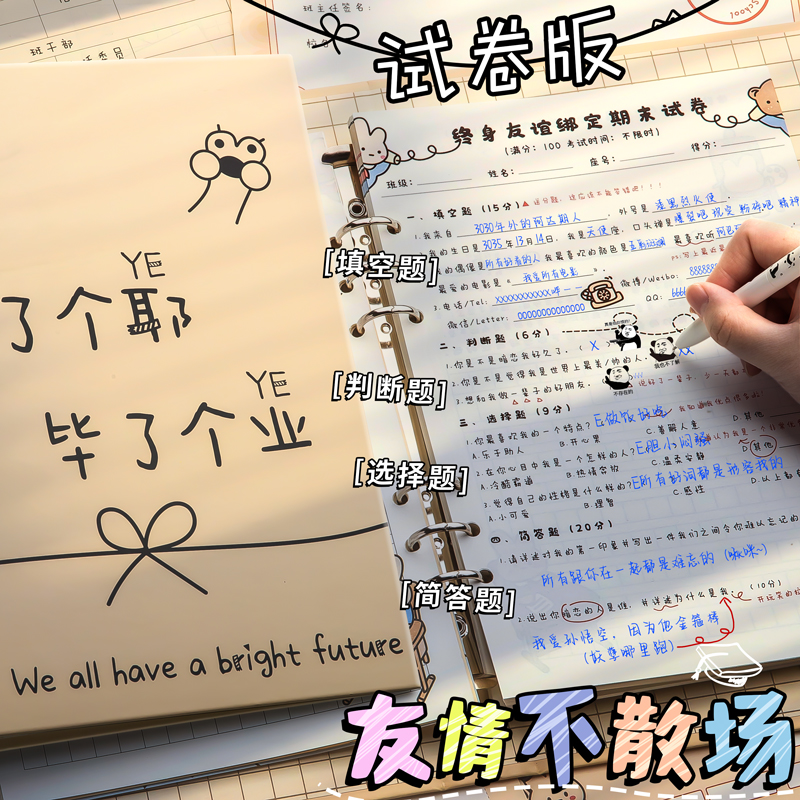 班主任签名:
班干部
试卷版
终身友谊绑定期末试卷
(满分：100 考试时间：不限时)
班级: 姓名: 座号: 得分:
一、填空题（15分）
1.我来自 3030年外的阿达期人 外号是 漆黑烈火使
我的生日是3035年13月14日, 我是天使座, 口头禅是
我的偶像是所有好看的人 我最喜欢的颜色是
最爱的电影是" 我爱所有电影 "
3.电话/Tel: XXXXXXXXXXX哗 微博/Weibo: 888888
微信/Letter: OOOOOOOOOOOOO QQ: 666
[填空题]
二、判断题（6分）
1.你是不是暗恋我好久了.( X
2.你是不是觉得我是世界上最美/帅的人. XX
3.想和我做一辈子的好朋友.
不存在的
[判断题]
三、选择题（9分）
1.你最喜欢我的一个特点? E做饭好吃
A.乐于助人 B.开心果 C.善解人意 D.其他
2.在你心目中我是一个怎样的人? E胆小闷骚
A.冷酷霸道 B.热情奔放 C.温柔安静 D.其他
3.觉得自己的性格是什么样的? E所有好词都是形容我的
A.小可爱 B.理智 C.感性 D.以上都
[选择题]
四、简答题（20分）
1.请详述对我的第一印象并写出一件我们之间令你难以忘记的
所有跟你在一起都是难忘的（嘞嘞~）
[简答题]
2.说出你暗恋的人是谁, 并详述为什么是我. (10分)
开玩笑的
我爱孙悟空, 因为他金箍棒
(妖孽哪里跑)
YE
了个耶
YE
毕了个业
We all have a bright future
友情不散场